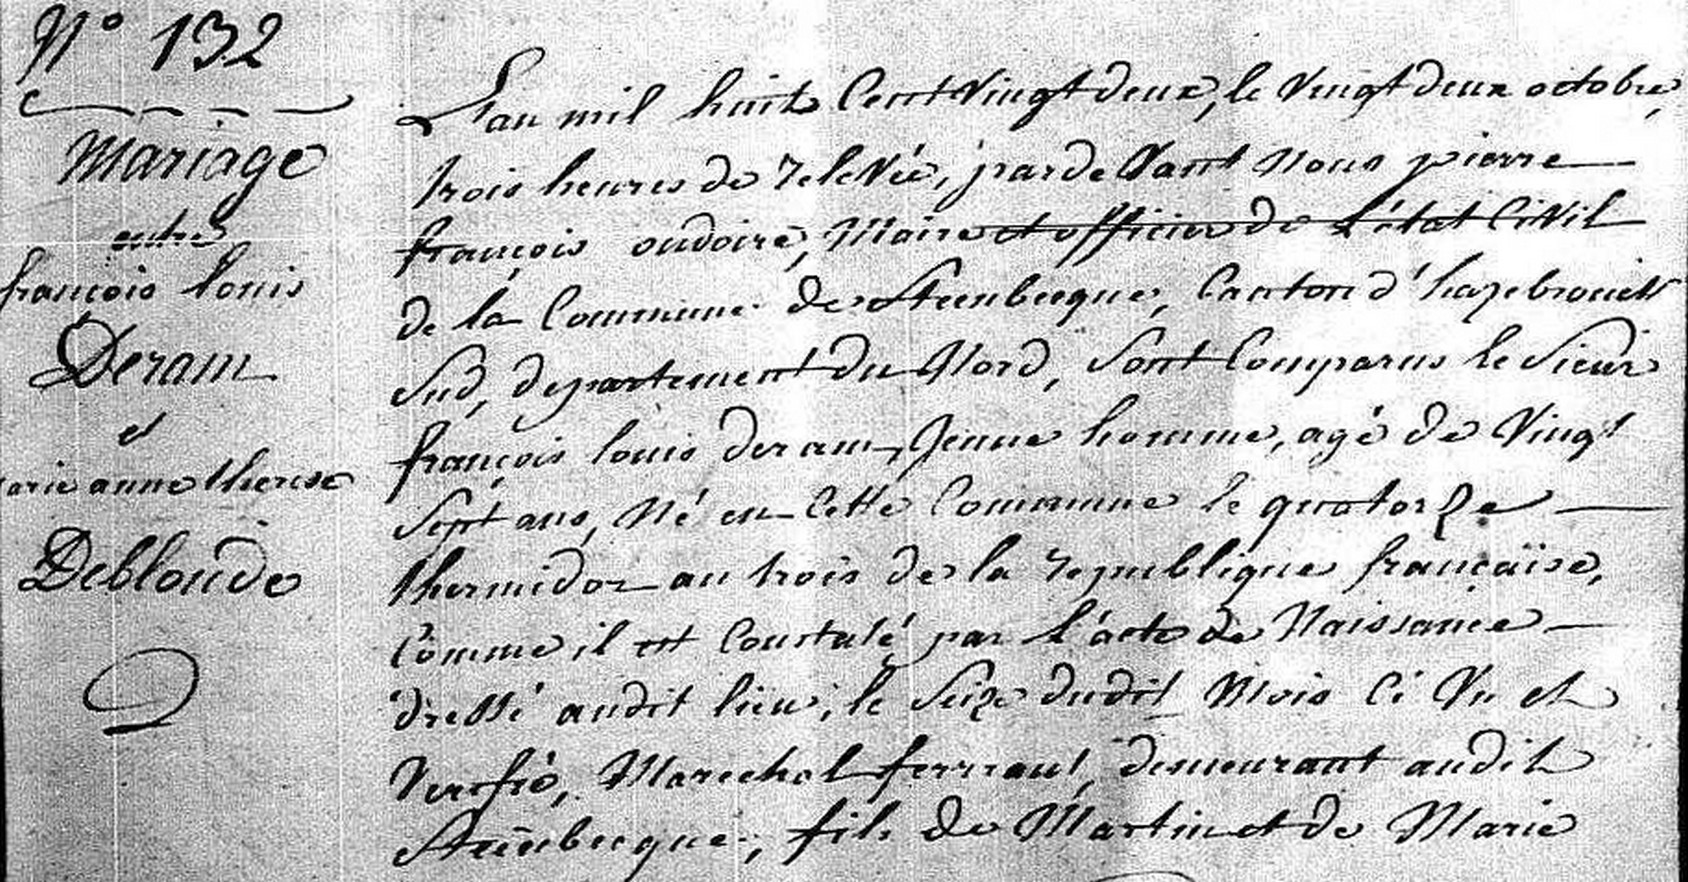 N° 132
Mariage
entre
françois louis
Deram
et
arie anne therese
Deblonde
L'an mil huit Cent Vingt deux, le Vingt deux octobre,
trois heures de relevée, pardeVant Nous pierre
françois oudoire, Maire et officier de l'état CiVil
de la Commune de Steenbecque, Canton d'hazebrouck
Sud, département du Nord, Sont Comparus le Sieur
françois louis deram, Jeune homme, agé de Vingt
Sept ans, Né en Cette Commune le quatorze
thermidor an trois de la republique françaïse,
Comme il est Constaté par l'acte de Naissance
dressé audit lieu, le Seize dudit Mois Ci Vu et
Verifié, Marechal ferrant, demeurant audit
Steenbecque, fils de Martin et de Marie